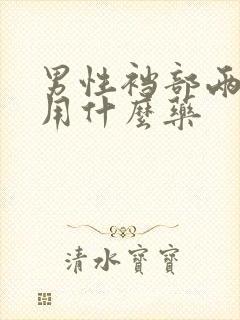 男性裆部两
用什麼藥
清水寶寶